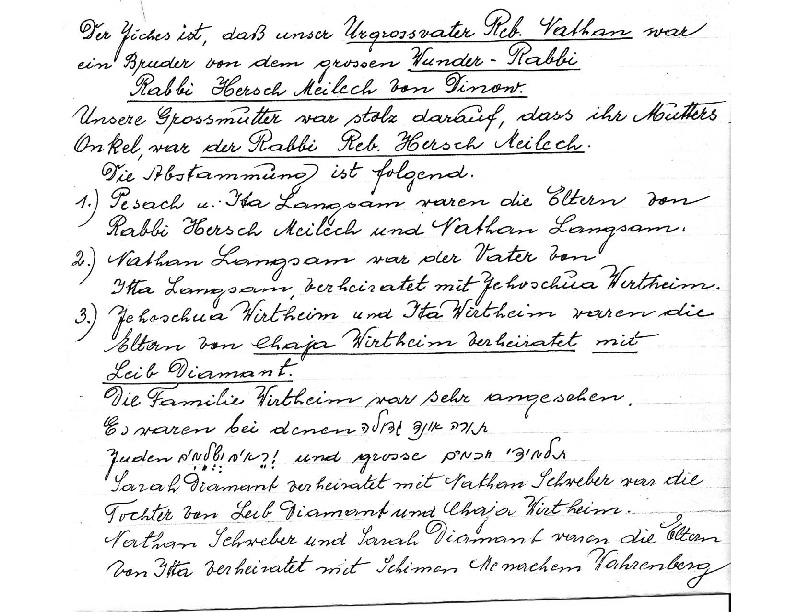 Der Jiches ist, daß unser Urgrossvater Reb. Nathan war
ein Bruder von dem grossen Wunder-Rabbi
Rabbi Hersch Meilech von Dinow.
Unsere Grossmutter war stolz darauf, dass ihr Mutters
Onkel, war der Rabbi Reb. Hersch Meilech.
Die Abstammung ist folgend.
1.) Pesach u. Ita Langsam waren die Eltern von
Rabbi Hersch Meilech und Nathan Langsam.
2.) Nathan Langsam war der Vater von
Itta Langsam, verheiratet mit Jehoschua Wirtheim.
3.) Jehoschua Wirtheim und Ita Wirtheim waren die
Eltern von Chaja Wirtheim verheiratet mit
Leib Diamant.
Die Familie Wirtheim war sehr angesehen.
Es waren bei denen תורה און גדולה
Juden und grosse תלמידי חכמים
Sarah Diamant verheiratet mit Nathan Schweber war die
Tochter von Leib Diamant und Chaja Wirtheim.
Nathan Schweber und Sarah Diamant waren die Eltern
von Itta verheiratet mit Schimon Menachem Wahrenberg